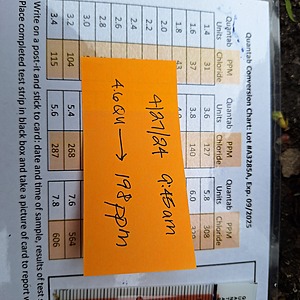 Quantab Conversion Chart: Lot #A3285A, Exp. 09/2025
Quantab Units PPM Chloride Quantab Units PPM Chloride Quantab Units PPM Chloride
1.4 31 3.6 127 5.8 308
1.6 37 3.8 140 6.0
1.8 43
2.0
2.2
2.4
2.6
2.8
3.0
3.2 104 5.4 268 7.6 564
3.4 115 5.6 287 7.8 606
4/27/24 9:45am
4.6QU → 198ppm
Write on a post-it and stick to card: date and time of sample, results of test
Place completed test strip in black box and take a picture of card to report